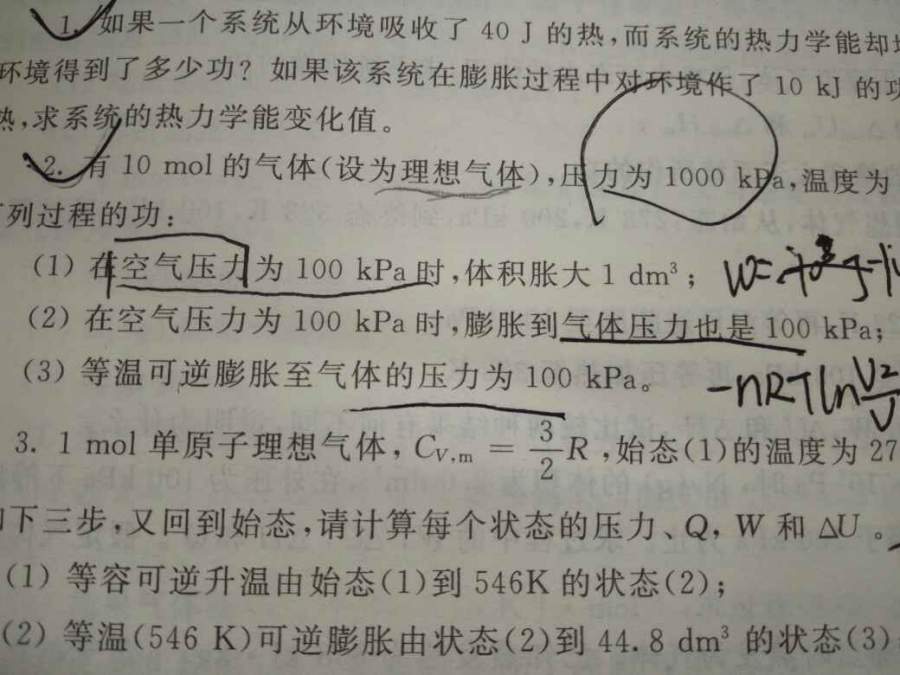 1. 如果一个系统从环境吸收了 40 J 的热,而系统的热力学能却增
环境得到了多少功? 如果该系统在膨胀过程中对环境作了 10 kJ 的功
热,求系统的热力学能变化值。
2. 有 10 mol 的气体(设为理想气体),压力为 1000 kPa,温度为
列过程的功:
(1) 在空气压力为 100 kPa 时,体积胀大 1 dm³;
W=
(2) 在空气压力为 100 kPa 时,膨胀到气体压力也是 100 kPa;
(3) 等温可逆膨胀至气体的压力为 100 kPa。
-nRTln V2/V
3. 1 mol 单原子理想气体, C_{V,m} = 3/2 R ,始态(1)的温度为 27
下三步,又回到始态,请计算每个状态的压力、Q, W 和 ΔU 。
(1) 等容可逆升温由始态(1)到 546K 的状态(2);
(2) 等温(546 K)可逆膨胀由状态(2)到 44.8 dm³ 的状态(3)